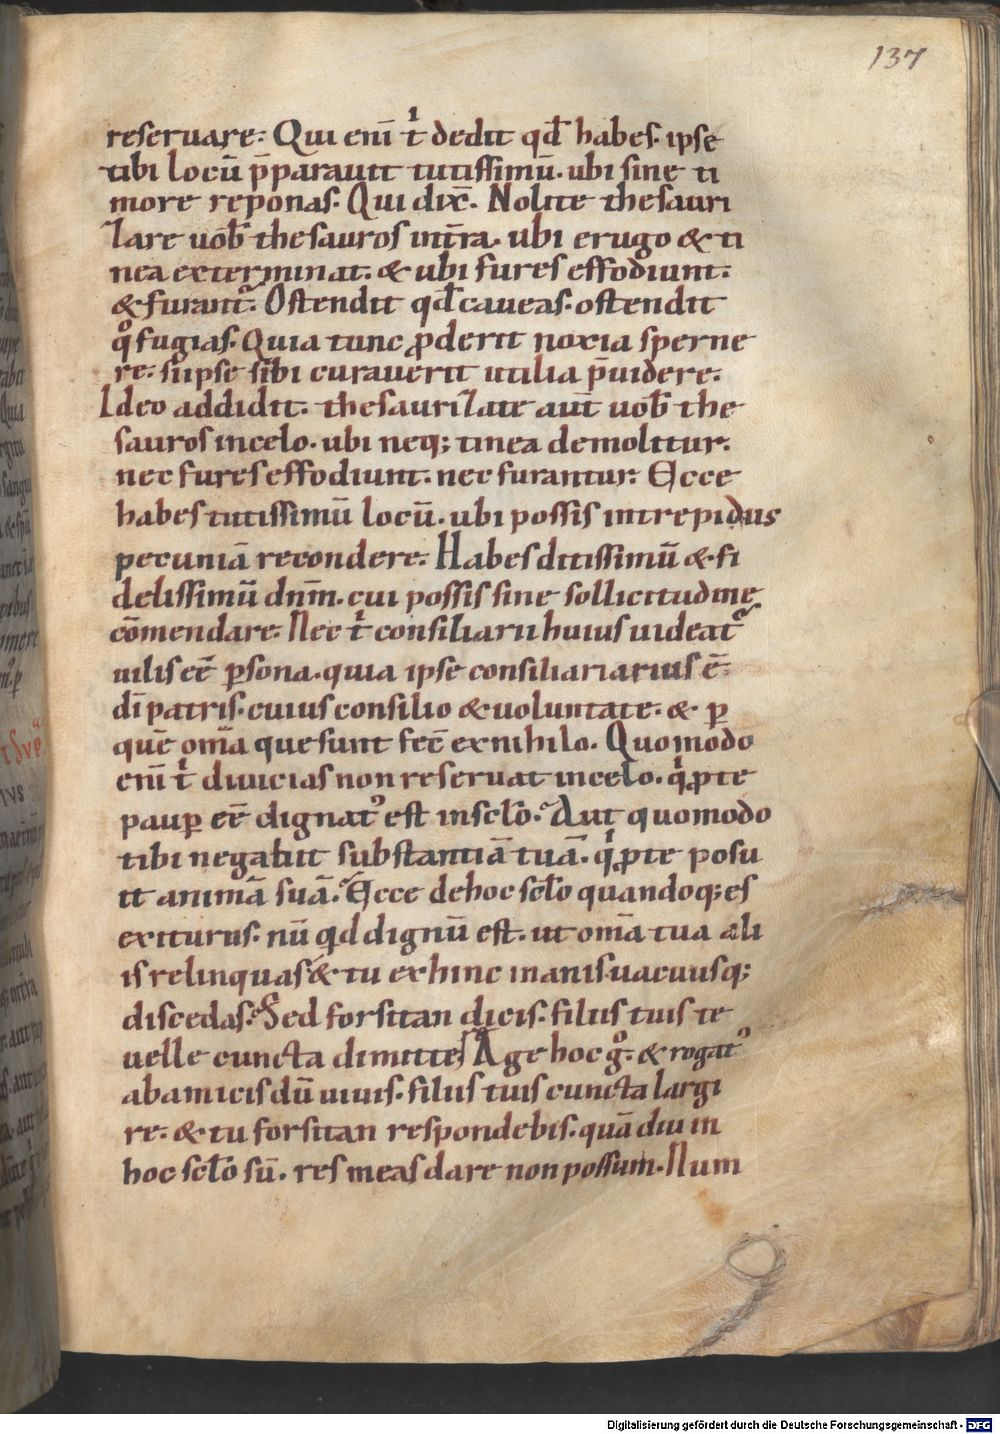 137
reseruare. Qui eni̅ tͥ dedit qd̅ habes. ipse
tibi locu̅ p̅parauit tutissimu̅. ubi sine ti
more reponas. Qui dix̅. Nolite thesauri
zare uob̅ thesauros int̅ra. ubi erugo & ti
nea exterminat. & ubi fures effodiunt.
& furant᷑. Ostendit qd̅ caueas. ostendit
qͦ fugias. Quia tunc ꝓderit noxia sperne
re. si ipse sibi curauerit utilia p̅uidere.
Ideo addidit. thesaurizate aut̅ uob̅ the
sauros incelo. ubi neq; tinea demolitur.
nec fures effodiunt. nec furantur. Ecce
habes tutissimu̅ locu̅. ubi possis intrepidus
pecunia̅ recondere. Habes ditissimu̅ & fi
delissimu̅ dn̅m. cui possis sine sollicitudine
co̅mendare. Nec tͥ consiliarii huius uideat᷑
uilis ee̅ ꝑsona. quia ipse consiliariarius e̅.
di̅ patris. cuius consilio & uoluntate. & ꝑ
que̅ om̅a que sunt fec̅ exnihilo. Quomodo
eni̅ tͥ diuicias non reseruat incelo. qͥ ꝓte
pauꝑ ee̅ dignat᷑ est inscl̅o. Aut quomodo
tibi negabit substantia̅ tua̅. qͥ ꝓte posu
it anima̅ sua̅. Ecce dehoc scl̅o quandoq; es
exiturus. nu̅ qd dignu̅ est. ut om̅a tua ali
is relinquas & tu exhinc inanis uacuusq;
discedas. Sed forsitan dicis. filiis tuis te
uelle cuncta dimittes Age hoc gͦ. & rogat᷑
abamicis du̅ uiuis. filiis tuis cuncta largi
re. & tu forsitan respondebis. qua̅ diu in
hoc scl̅o su̅. res meas dare non possum. Num
Digitalisierung gefördert durch die Deutsche Forschungsgemeinschaft - DFG